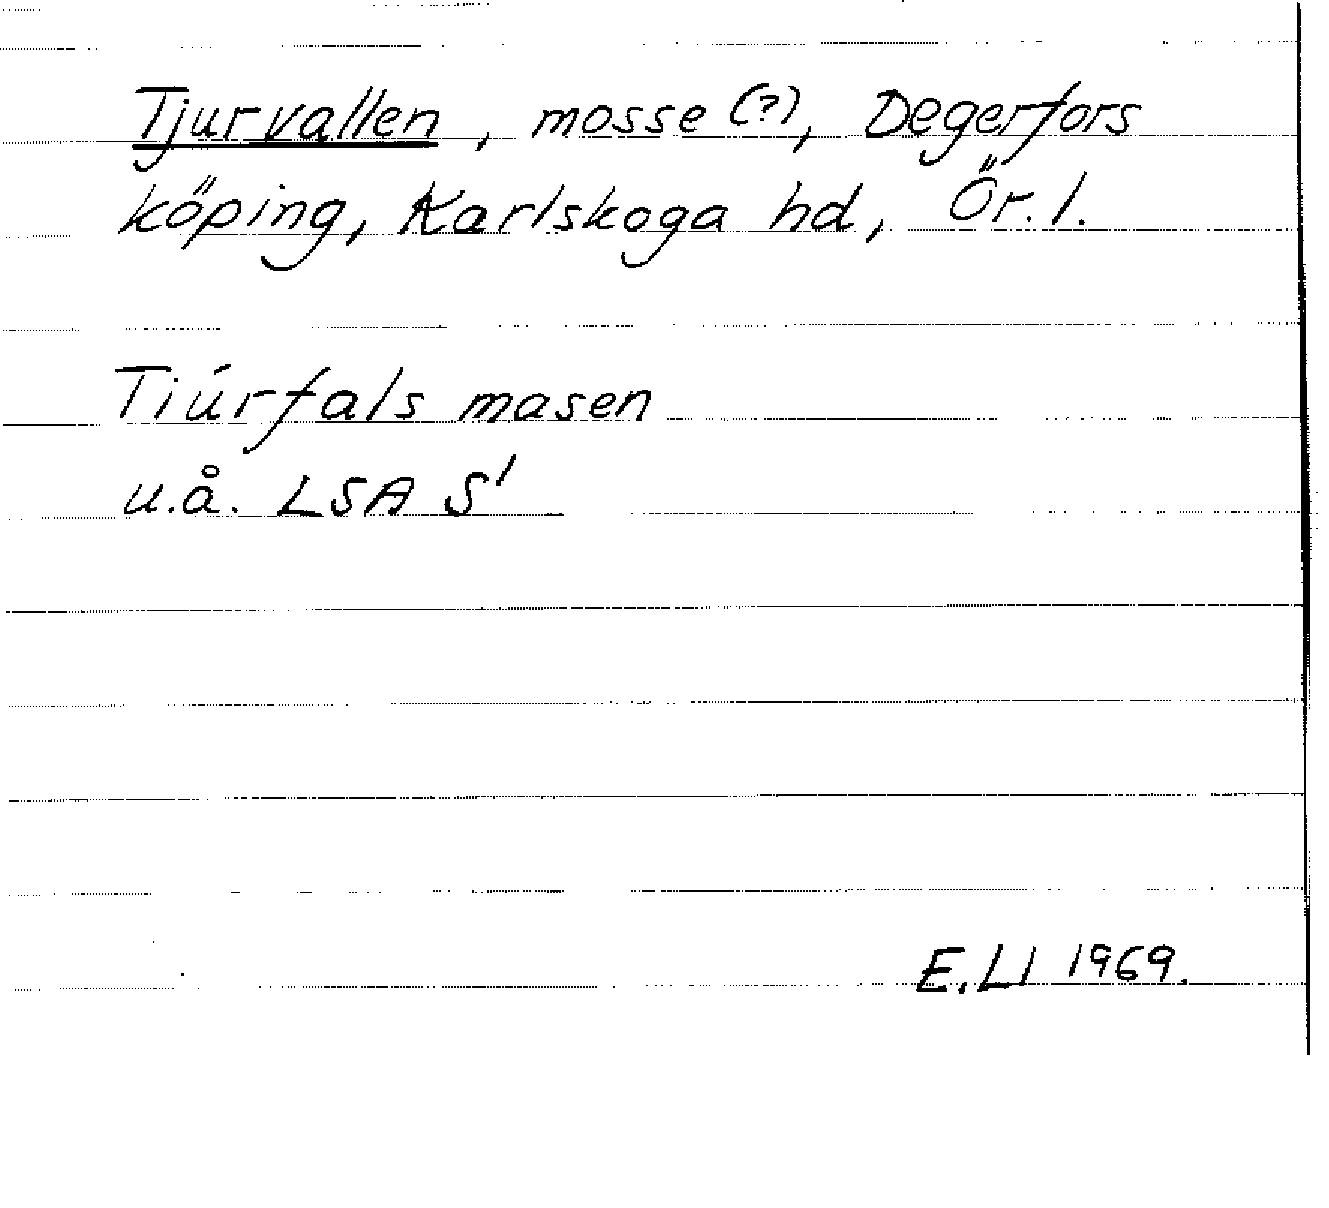 Tjurvallen, mosse (?), Degerfors
köping, Karlskoga hd, Ör. l.
Tiúrfals masen
u.å. LSA S'
E.Ll 1969.